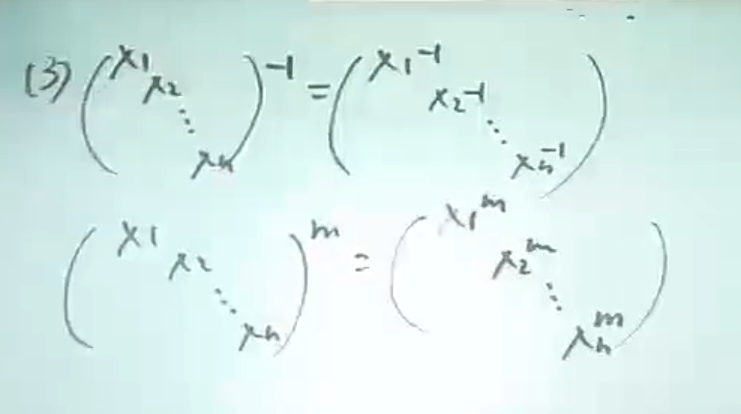 (3) (x₁ x₂ ⋱ xₙ)⁻¹ = (x₁⁻¹ x₂⁻¹ ⋱ xₙ⁻¹)
(x₁ x₂ ⋱ xₙ)ᵐ = (x₁ᵐ x₂ᵐ ⋱ xₙᵐ)